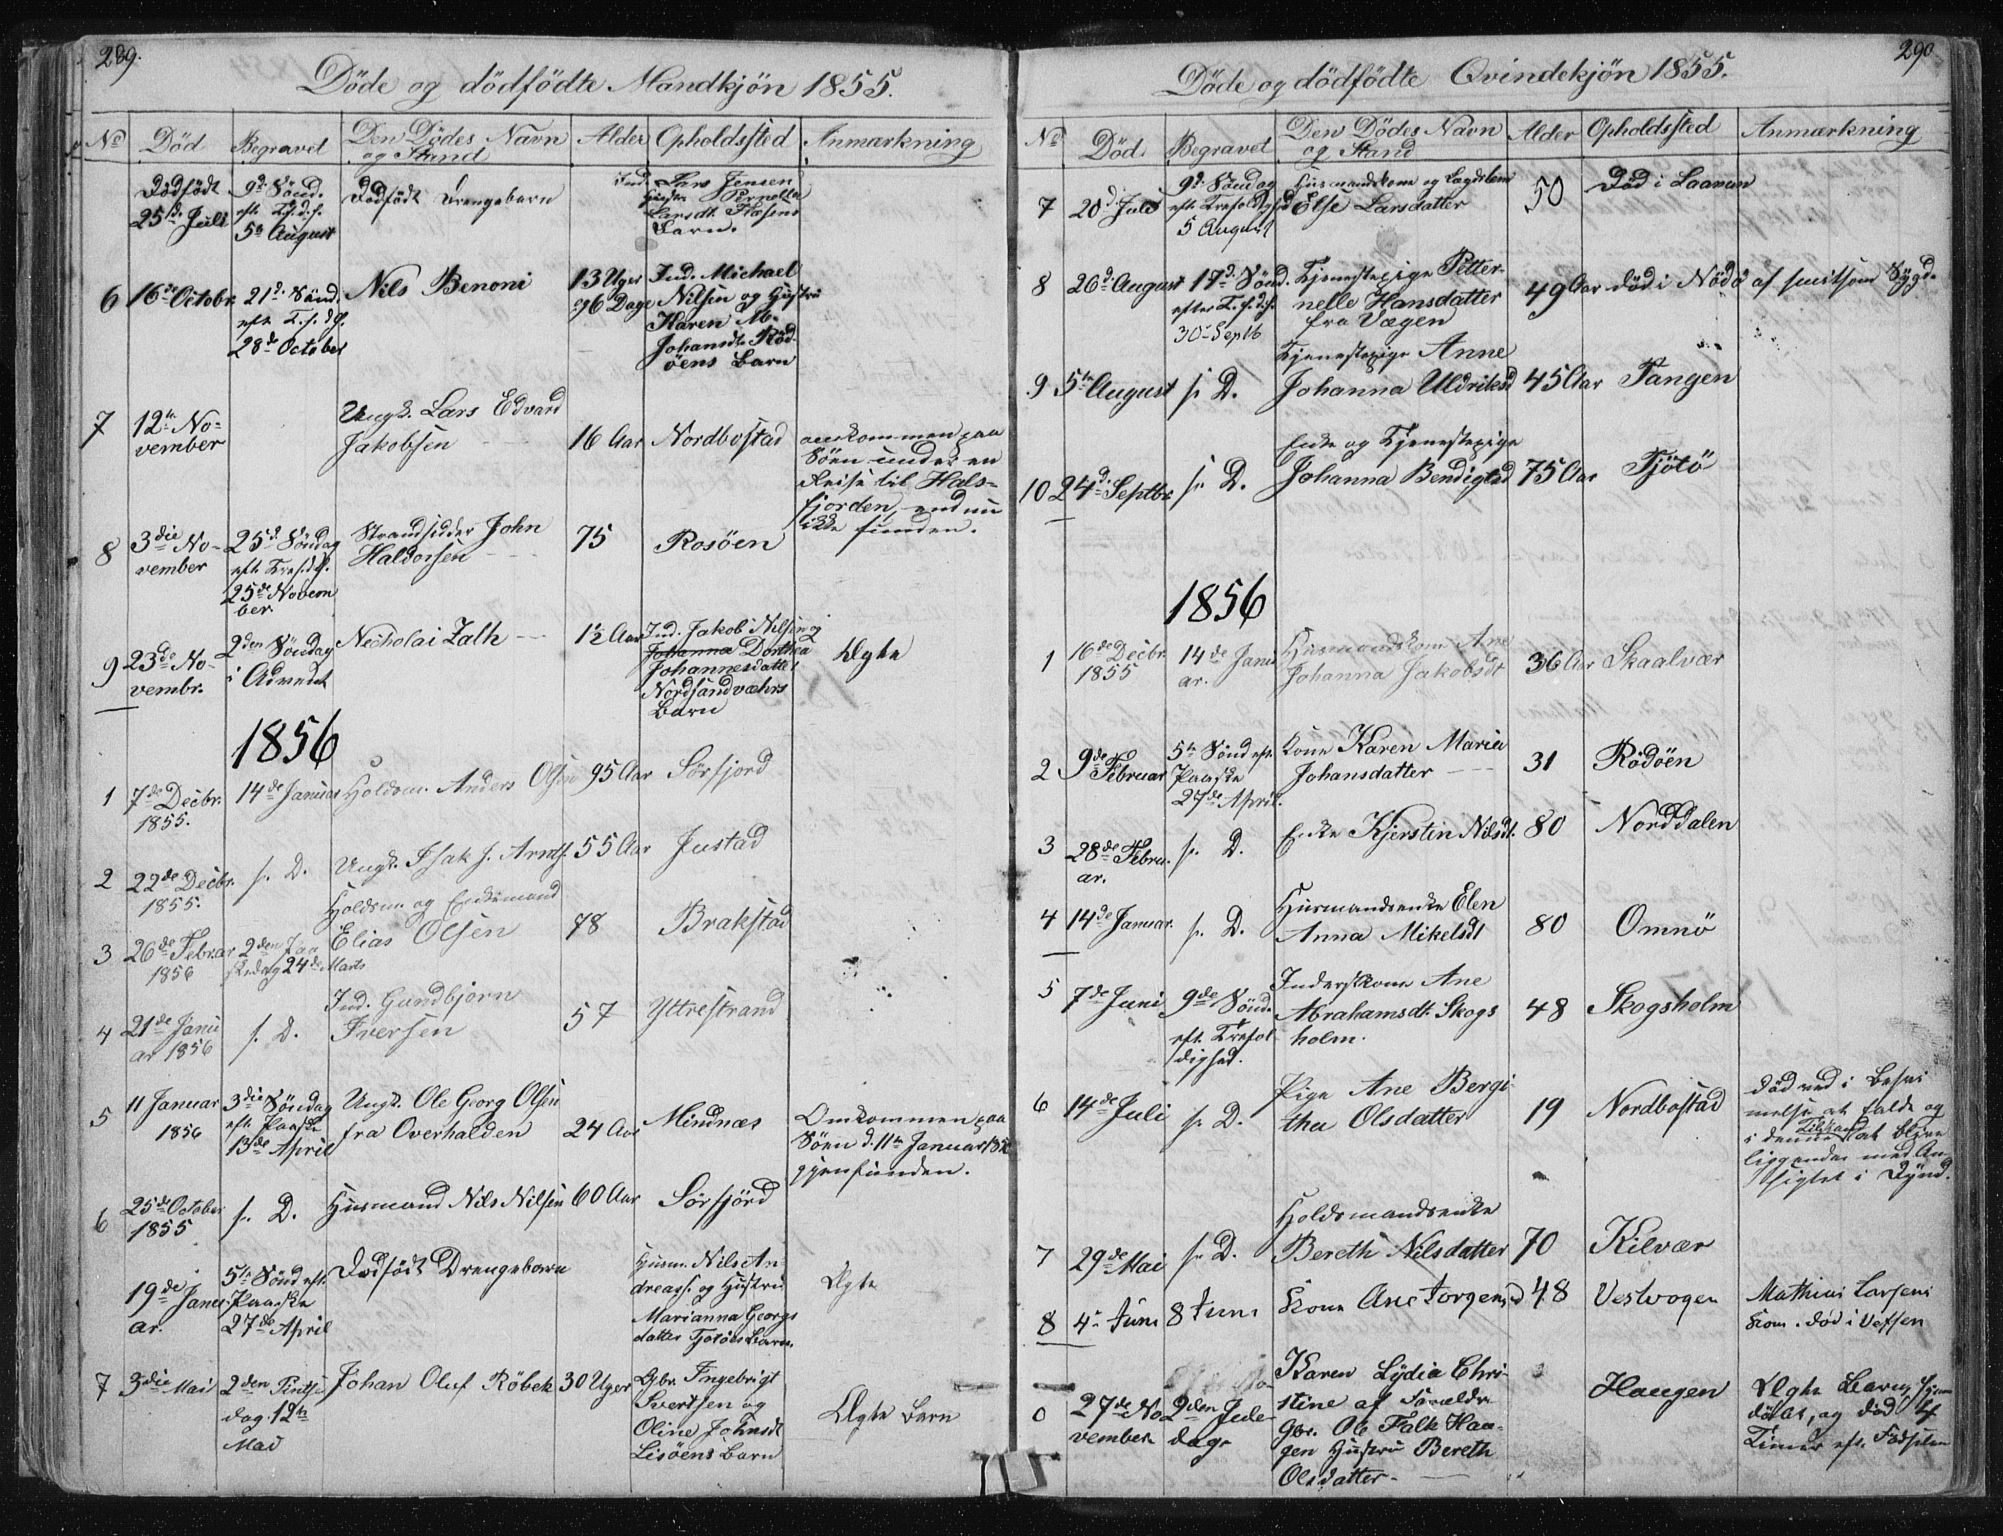 289.
Döde og dödfödte Mandkjön 1855.
No Död Begravet Den Dödes Navn og Stand Alder Opholdssted Anmærkning
Dödfödt
25de Juli
9de Sönd.
eft. T.f.d.f.
5te August
Dödfödt Drengebarn
Ind. Lars Jensen
Pernella
Larsdt.
Barn.
6 16de Octobr.
21de Sönd.
eft. T.f.d.f.
28de October
Nils Benoni
13 Uger
og 6 Dage
Ind. Michael
Nilsen og Hustru
Karen M.
Johansdt. Röd-
öens Barn
7 12te No-
vember
Ungk. Lars Edvard
Jakobsen
16 Aar
Nordbostad
omkommen paa
Söen under en
Reise til Hals-
fjorden, endnu
ikke funden.
8 3die No-
vember
25de Söndag
eft. Tref.d.f.
25de Novem
ber
Strandsidder John
Haldorsen
75
Rosöen
9 23de No-
vembr.
2den Söndag
i Advent
Nicholai Zalh
1½ Aar
Ind. Jakob Nilsen og
Johanna Dorthea
Johannesdatter
Nordsandværs
Barn
Ægte
1856
1 7de Decbr.
1855.
14de Januar
Holdsm. Anders Olsen
95 Aar
Sörfjord
2 22de Decbr.
1855.
s. D.
Ungk. Isak J. Arnts.
55 Aar
Justad
3 26de Februar
1856
2den Paa
skedag 24de Marts
Holdsm. og Enkemand
Elias Olsen
78
Brakstad
4 21de Janu
ar 1856
s. D.
Ind. Gundbjorn
Iversen
57
Yttrestrand
5 11 Januar
1856
3die Söndag
eft. Paaske
13de April
Ungk. Ole Georg Olsen
fra Overhalden
24 Aar
Mindnæs
Omkommen paa
Söen d. 11te Januar
gjenfunden.
6 25de October
1855
s. D.
Husmand Nils Nilsen
60 Aar
Sörfjörd
19de Janu-
ar.
5te Sönd eft.
Paaske
27de April
Dödfödt Drengebarn
Husm. Nils An-
dreass. og Hustru
Marianna Georgs
datter Barn.
Ægte
7 3die Mai
2den Pintse
dag. 12te
Mai
Johan Oluf Röbek
30 Uger
Gbr. Ingebrigt
Sivertsen og
Oline Johnsdt
Lisöens Barn
Ægte Barn
290
Döde og dödfödte Qvindekjön 1855.
No Död Begravet Den Dödes Navn og Stand Alder Opholdssted Anmærkning
7 20de Juli
9de Söndag
eft. Trefoldighed
5 August
Husmandskone og Lægdslem
Else Larsdatter
50
Död i Laanan
8 26de August
17de Sönd.
efter T.f.d.f.
30 Septb
Tjenestepige Petter-
nelle Hansdatter
fra Vægen
49 Aar
död i Nödö af smitsom Sygd.
9 5te August
s. D.
Tjenestepige Anne
Johanna Uldriksd
45 Aar
Tangen
10 24de Septbr.
s. D.
Enke og Tjenestepige
Johanna Bendigtsd
75 Aar
Tjötö
1856
1 16de Decbr.
1855
14de Janu
ar.
Husmandskone Ane
Johanna Jakobsdt
36 Aar
Skaalvær
2 9de Februar
5te Sönd eft.
Paaske
27de April.
Kone Karen Maria
Johansdatter
31
Rödöen
3 28de Febru-
ar.
s. D.
Enke Kjerstin Nilsdt.
80
Norddalen
4 14de Januar.
s. D.
Husmandsenke Elen
Anna Mikelsdt
80
Omnö
5 7de Juni
9de Sönd.
eft. Trefol-
dighed.
Inderstkone Ane
Abrahamsdt. Skogs
holm.
48
Skogsholm
6 14de Juli
s. D.
Pige Ane Bergi-
tha Olsdatter
19
Nordbostad
död ved i Besvi
melse at falde og
i denne Tilstand at blive
liggende med An-
sigtet i Dynd.
7 29de Mai
s. D.
Holdsmandsenke
Bereth Nilsdatter
70
Kilvær
8 4 Juni
8 Juni
Kone Ane Jorgensd
48
Vestvogen
Mathias Larsens
Kone. död i Vefsen
0 27de No-
vember
2den Jule-
dag
Karen Lydia Chri-
stine af Forældr.
Gbr. Ole Falk Hau-
gen Hustru Bereth
Olsdatter
Haugen
Ægte Barn, hjem
döbt, og död 4
Timer eft. Födselen